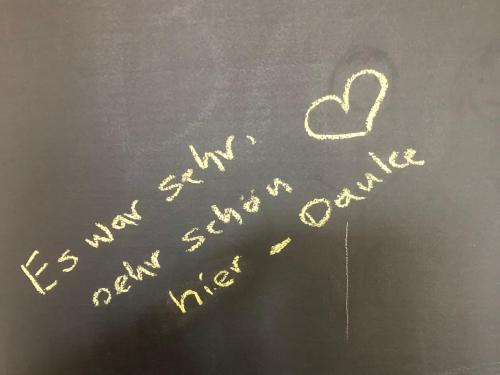 Es war sehr,
sehr schön
hier - Danke